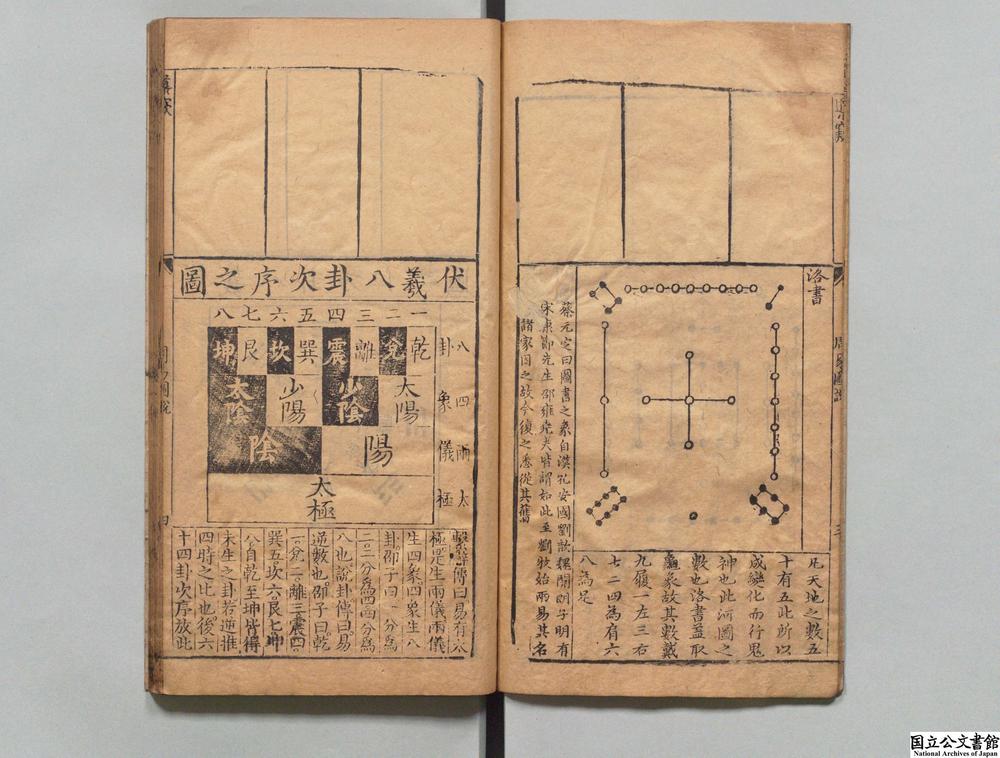 洛書
凡天地之數五
十有五此所以
成變化而行鬼
神也此河圖之
數也洛書蓋取
龜象故其數戴
九履一左三右
七二四為肩六
八為足
蔡元定曰圖書之象自漢孔安國劉歆魏關朗子明有
宋康節先生邵雍堯夫皆謂如此至劉牧始兩易其名
諸家因之故今復之悉從其舊
伏羲八卦次序之圖
一二三四五六七八
八卦
乾兌離震巽坎艮坤
四象
太陽
少陰
少陽
太陰
兩儀
陽
陰
太極
太極
繫辭傳曰易有太
極是生兩儀兩儀
生四象四象生八
卦邵子曰一分爲
二二分爲四四分爲
八也說卦傳曰易
逆數也邵子曰乾
一兌二離三震四
巽五坎六艮七坤
八自乾至坤皆得
未生之卦若逆推
四時之比也後六
十四卦次序放此
国立公文書館
National Archives of Japan